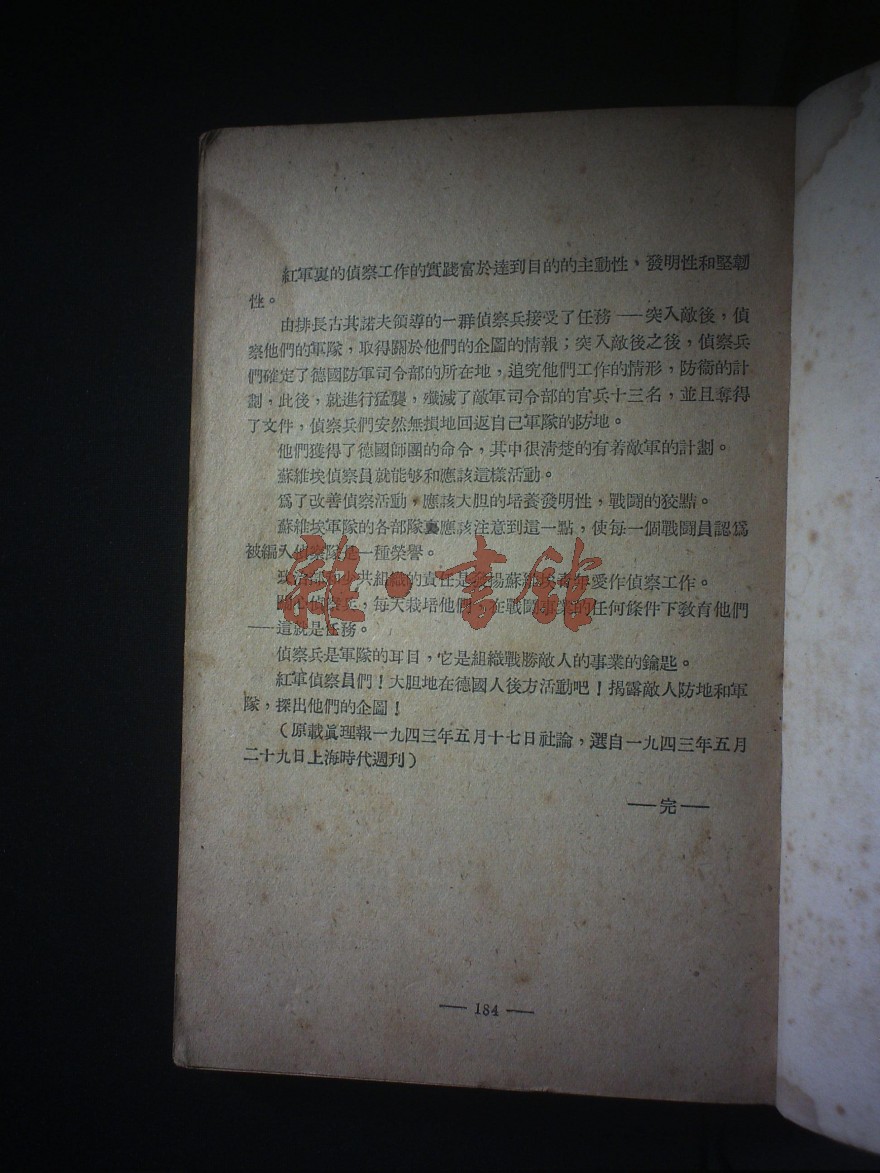 紅軍裏的偵察工作的實踐富於達到目的的主動性、發明性和堅韌
性。
由排長古其諾夫領導的一群偵察兵接受了任務——突入敵後，偵
察他們的軍隊，取得關於他們的企圖的情報；突入敵後之後，偵察兵
們確定了德國防軍司令部的所在地，追究他們工作的情形，防衞的計
劃，此後，就進行猛襲，殲滅了敵軍司令部的官兵十三名，並且奪得
了文件，偵察兵們安然無損地回返自己軍隊的防地。
他們獲得了德國師團的命令，其中很清楚的有着敵軍的計劃。
蘇維埃偵察員就能够和應該這樣活動。
爲了改善偵察活動，應該大胆的培養發明性，戰鬪的狡黠。
蘇維埃軍隊的各部隊裏應該注意到這一點，使每一個戰鬪員認爲
被編入偵察隊是一種榮譽。
共組織的責任是 揚蘇維埃青年愛作偵察工作。
關心偵察兵，每天栽培他們，在戰鬪 的任何條件下教育他們
——這就是任務。
偵察兵是軍隊的耳目，它是組織戰勝敵人的事業的鑰匙。
紅軍偵察員們！大胆地在德國人後方活動吧！揭露敵人防地和軍
隊，探出他們的企圖！
（原載眞理報一九四三年五月十七日社論，選自一九四三年五月
二十九日上海時代週刊）
——完——
— 184 —
雜·書館